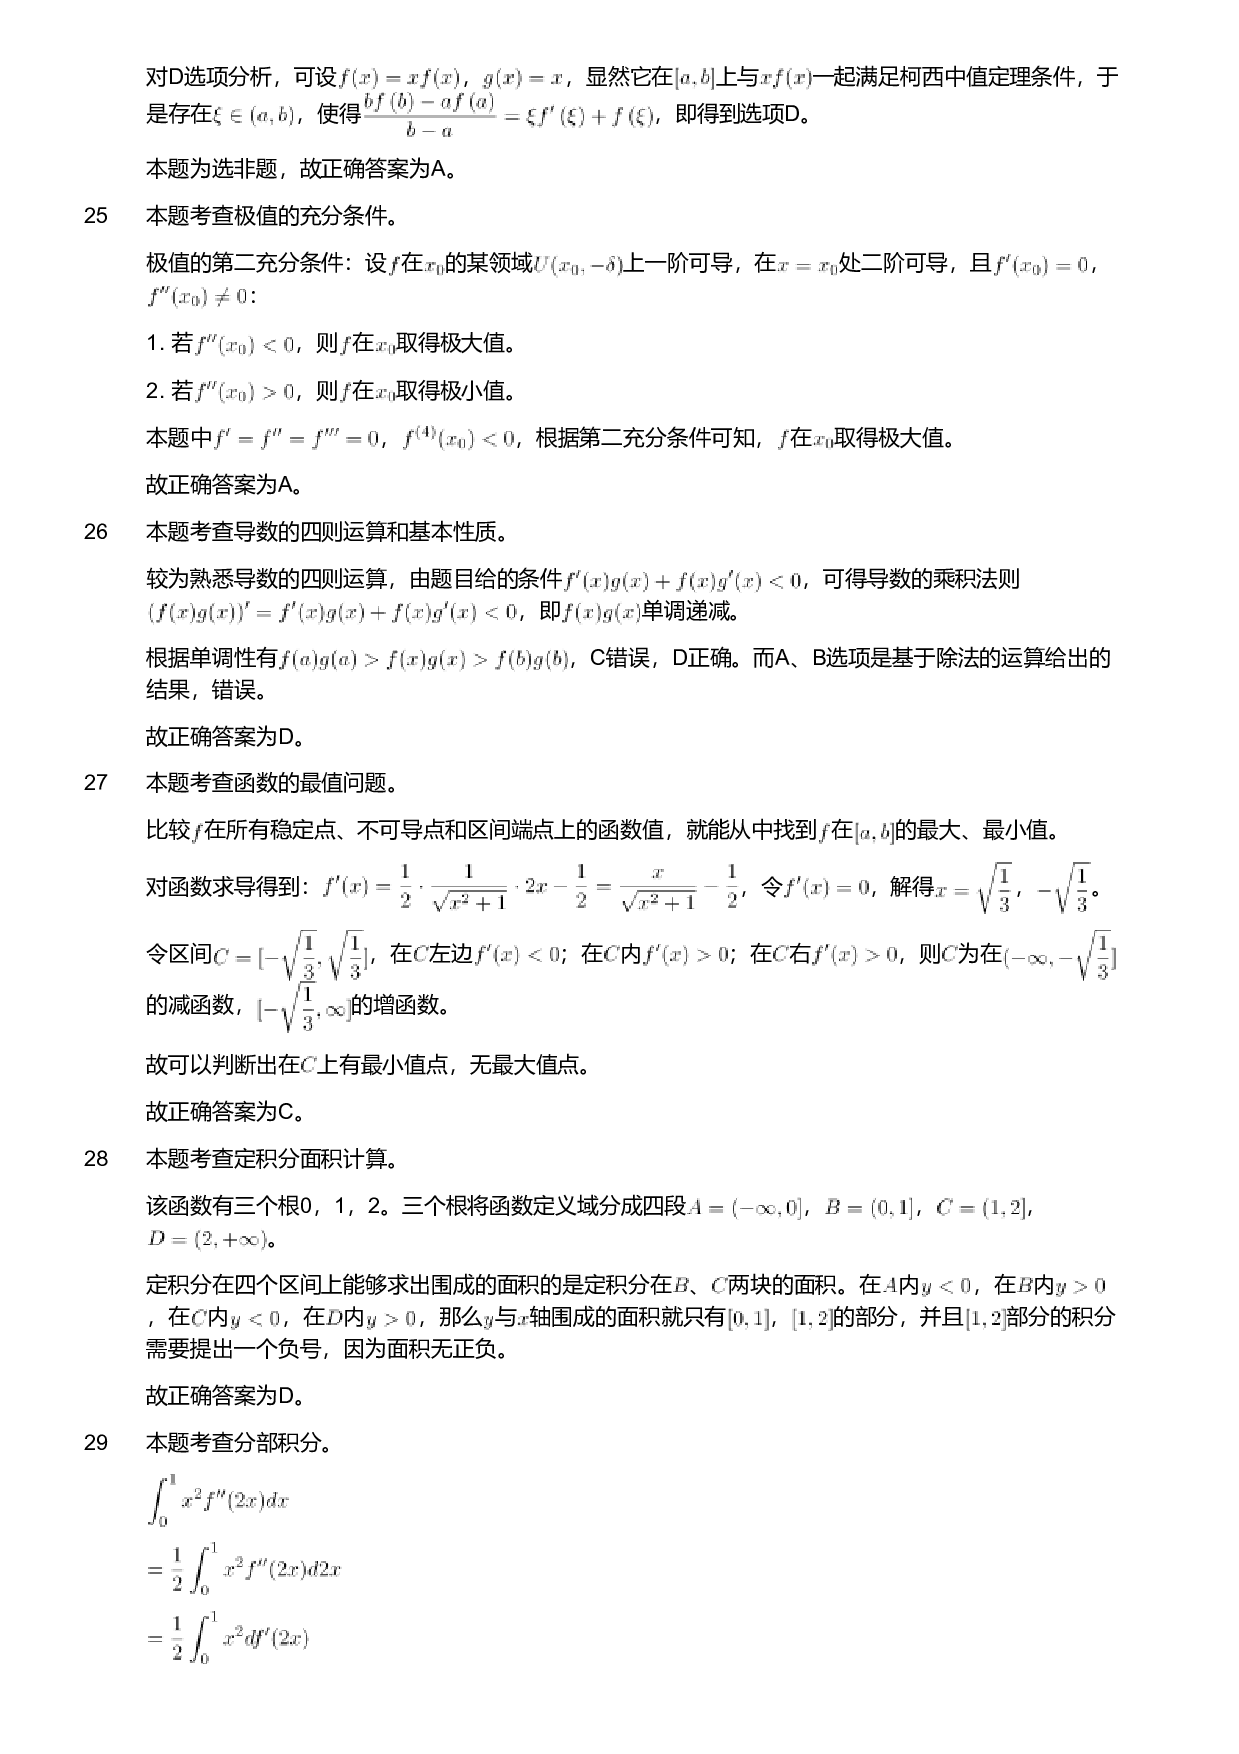 对D选项分析，可设f(x) = xf(x)，g(x) = x，显然它在[a, b]上与xf(x)一起满足柯西中值定理条件，于
是存在ξ ∈ (a, b)，使得\frac{bf(b) − af(a)}{b − a} = ξf′(ξ) + f(ξ)，即得到选项D。
本题为选非题，故正确答案为A。
25 本题考查极值的充分条件。
极值的第二充分条件：设f在x₀的某领域U(x₀, −δ)上一阶可导，在x = x₀处二阶可导，且f′(x₀) = 0，
f″(x₀) ≠ 0：
1. 若f″(x₀) < 0，则f在x₀取得极大值。
2. 若f″(x₀) > 0，则f在x₀取得极小值。
本题中f′ = f″ = f‴ = 0，f⁽⁴⁾(x₀) < 0，根据第二充分条件可知，f在x₀取得极大值。
故正确答案为A。
26 本题考查导数的四则运算和基本性质。
较为熟悉导数的四则运算，由题目给的条件f′(x)g(x) + f(x)g′(x) < 0，可得导数的乘积法则
(f(x)g(x))′ = f′(x)g(x) + f(x)g′(x) < 0，即f(x)g(x)单调递减。
根据单调性有f(a)g(a) > f(x)g(x) > f(b)g(b)，C错误，D正确。而A、B选项是基于除法的运算给出的
结果，错误。
故正确答案为D。
27 本题考查函数的最值问题。
比较f在所有稳定点、不可导点和区间端点上的函数值，就能从中找到f在[a, b]的最大、最小值。
对函数求导得到：f′(x) = \frac{1}{2} · \frac{1}{\sqrt{x² + 1}} · 2x − \frac{1}{2} = \frac{x}{\sqrt{x² + 1}} − \frac{1}{2}，令f′(x) = 0，解得x = \sqrt{\frac{1}{3}}，−\sqrt{\frac{1}{3}}。
令区间C = [−\sqrt{\frac{1}{3}}, \sqrt{\frac{1}{3}}]，在C左边f′(x) < 0；在C内f′(x) > 0；在C右f′(x) > 0，则C为在(−∞, −\sqrt{\frac{1}{3}}]
的减函数，[−\sqrt{\frac{1}{3}}, ∞]的增函数。
故可以判断出在C上有最小值点，无最大值点。
故正确答案为C。
28 本题考查定积分面积计算。
该函数有三个根0，1，2。三个根将函数定义域分成四段A = (−∞, 0]，B = (0, 1]，C = (1, 2]，
D = (2, +∞)。
定积分在四个区间上能够求出围成的面积的是定积分在B、C两块的面积。在A内y < 0，在B内y > 0
，在C内y < 0，在D内y > 0，那么y与x轴围成的面积就只有[0, 1]，[1, 2]的部分，并且[1, 2]部分的积分
需要提出一个负号，因为面积无正负。
故正确答案为D。
29 本题考查分部积分。
\int_0^1 x²f″(2x)dx
= \frac{1}{2} \int_0^1 x²f″(2x)d2x
= \frac{1}{2} \int_0^1 x²df′(2x)